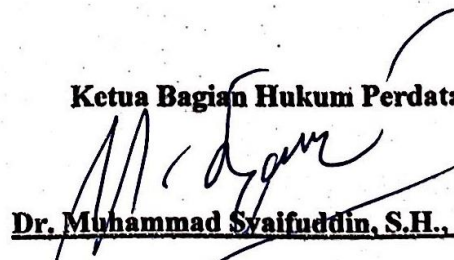 Ketua Bagian Hukum Perdata
Dr. Muhammad Syaifuddin, S.H.,